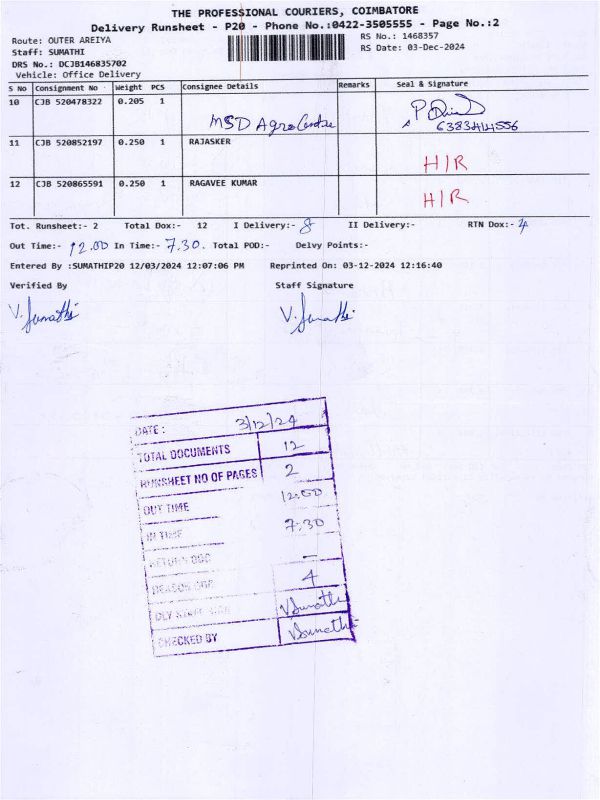 THE PROFESSIONAL COURIERS, COIMBATORE
Delivery Runsheet - P20 - Phone No.:0422-3505555 - Page No.:2
Route: OUTER AREIYA RS No.: 1468357
Staff: SUMATHI RS Date: 03-Dec-2024
DRS No.: DCJB146835702
Vehicle: Office Delivery
S No Consignment No Weight PCS Consignee Details Remarks Seal & Signature
10 CJB 520478322 0.205 1
MSD Agro Centre
11 CJB 520852197 0.250 1 RAJASKER
H/R
12 CJB 520865591 0.250 1 RAGAVEE KUMAR
H/R
Tot. Runsheet:- 2 Total Dox:- 12 I Delivery:- 8 II Delivery:- RTN Dox:- 4
Out Time:- 12.00 In Time:- 7.30. Total POD:- Delvy Points:-
Entered By :SUMATHIP20 12/03/2024 12:07:06 PM Reprinted On: 03-12-2024 12:16:40
Verified By Staff Signature
V. Sumathi V. Sumathi
DATE : 3/12/24
TOTAL DOCUMENTS 12
RUNSHEET NO OF PAGES 2
OUT TIME 12.00
IN TIME 7.30
RETURN –
REASON 4
DLY STAFF V Sumathi
CHECKED BY V Sumathi